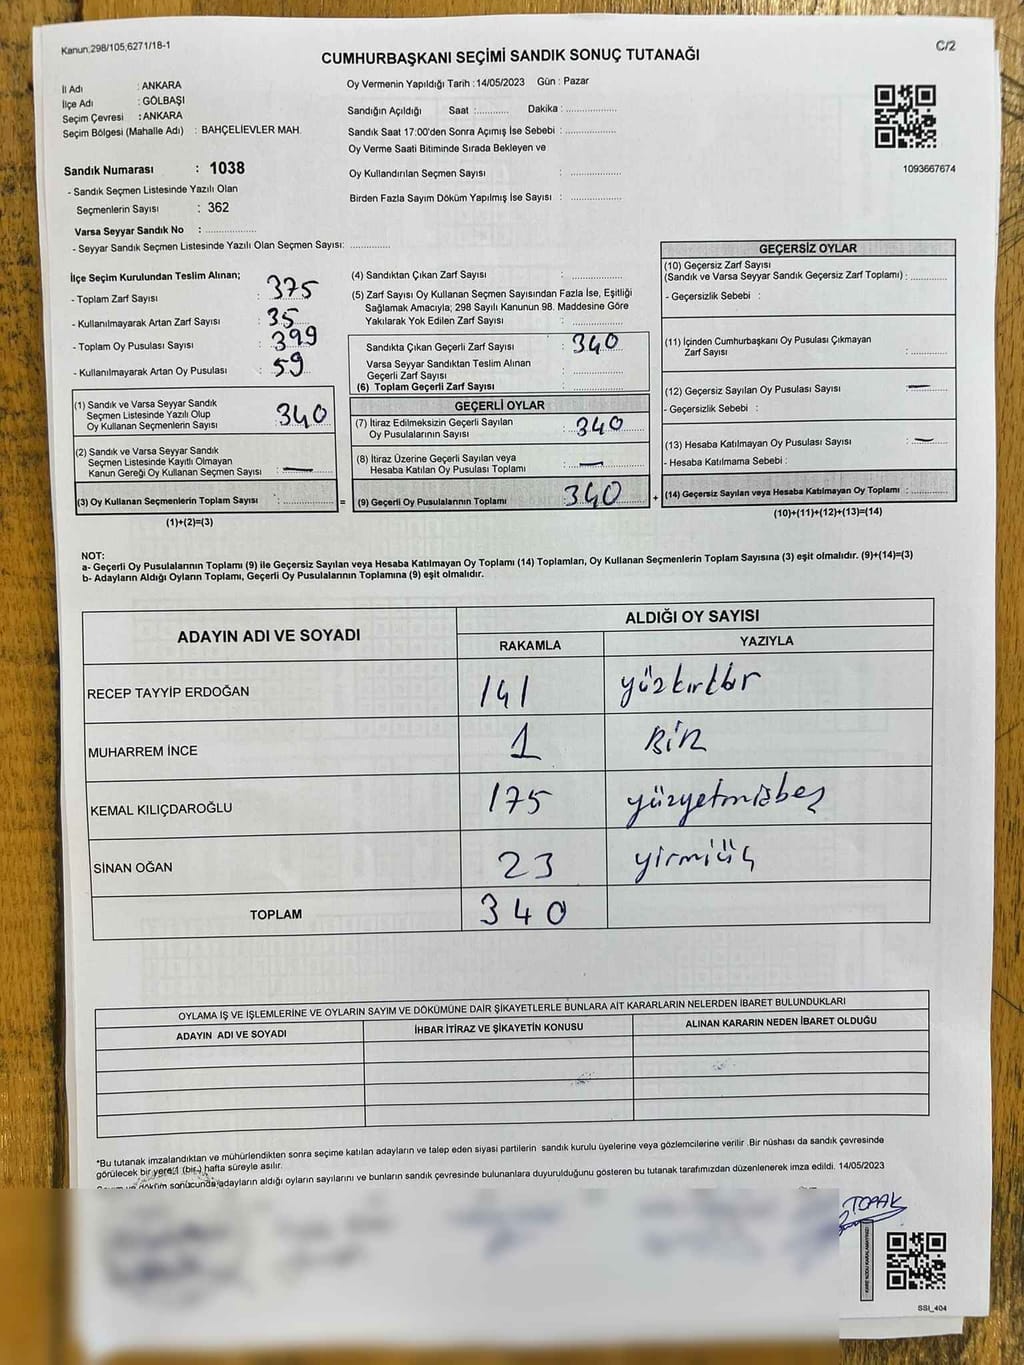 Kanun;298/105;6271/18-1
C/2
CUMHURBAŞKANI SEÇİMİ SANDIK SONUÇ TUTANAĞI
İl Adı : ANKARA
İlçe Adı : GÖLBAŞI
Seçim Çevresi : ANKARA
Seçim Bölgesi (Mahalle Adı) : BAHÇELİEVLER MAH.
Oy Vermenin Yapıldığı Tarih : 14/05/2023 Gün : Pazar
Sandığın Açıldığı Saat :........... Dakika : ................
Sandık Saat 17:00'den Sonra Açımış İse Sebebi : ................
Oy Verme Saati Bitiminde Sırada Bekleyen ve
Oy Kullandırılan Seçmen Sayısı : ................
Birden Fazla Sayım Döküm Yapılmış İse Sayısı : ................
1093667674
Sandık Numarası : 1038
- Sandık Seçmen Listesinde Yazılı Olan
Seçmenlerin Sayısı : 362
Varsa Seyyar Sandık No : ................
- Seyyar Sandık Seçmen Listesinde Yazılı Olan Seçmen Sayısı: ............
İlçe Seçim Kurulundan Teslim Alınan;
- Toplam Zarf Sayısı : 375
- Kullanılmayarak Artan Zarf Sayısı : 35
- Toplam Oy Pusulası Sayısı : 399
- Kullanılmayarak Artan Oy Pusulası : 59
(1) Sandık ve Varsa Seyyar Sandık
Seçmen Listesinde Yazılı Olup
Oy Kullanan Seçmenlerin Sayısı : 340
(2) Sandık ve Varsa Seyyar Sandık
Seçmen Listesinde Kayıtlı Olmayan
Kanun Gereği Oy Kullanan Seçmen Sayısı : —
(3) Oy Kullanan Seçmenlerin Toplam Sayısı : ................
(1)+(2)=(3)
(4) Sandıktan Çıkan Zarf Sayısı : ................
(5) Zarf Sayısı Oy Kullanan Seçmen Sayısından Fazla İse, Eşitliği
Sağlamak Amacıyla; 298 Sayılı Kanunun 98. Maddesine Göre
Yakılarak Yok Edilen Zarf Sayısı : ................
Sandıkta Çıkan Geçerli Zarf Sayısı : 340
Varsa Seyyar Sandıktan Teslim Alınan
Geçerli Zarf Sayısı : ................
(6) Toplam Geçerli Zarf Sayısı : ................
=
GEÇERLİ OYLAR
(7) İtiraz Edilmeksizin Geçerli Sayılan
Oy Pusulalarının Sayısı : 340
(8) İtiraz Üzerine Geçerli Sayılan veya
Hesaba Katılan Oy Pusulası Toplamı : —
(9) Geçerli Oy Pusulalarının Toplamı : 340
+
GEÇERSİZ OYLAR
(10) Geçersiz Zarf Sayısı
(Sandık ve Varsa Seyyar Sandık Geçersiz Zarf Toplamı) : ............
- Geçersizlik Sebebi :
(11) İçinden Cumhurbaşkanı Oy Pusulası Çıkmayan
Zarf Sayısı : ............
(12) Geçersiz Sayılan Oy Pusulası Sayısı : —
- Geçersizlik Sebebi :
(13) Hesaba Katılmayan Oy Pusulası Sayısı : —
- Hesaba Katılmama Sebebi :
(14) Geçersiz Sayılan veya Hesaba Katılmayan Oy Toplamı : ............
(10)+(11)+(12)+(13)=(14)
NOT:
a- Geçerli Oy Pusulalarının Toplamı (9) ile Geçersiz Sayılan veya Hesaba Katılmayan Oy Toplamı (14) Toplamları, Oy Kullanan Seçmenlerin Toplam Sayısına (3) eşit olmalıdır. (9)+(14)=(3)
b- Adayların Aldığı Oyların Toplamı, Geçerli Oy Pusulalarının Toplamına (9) eşit olmalıdır.
ADAYIN ADI VE SOYADI
ALDIĞI OY SAYISI
RAKAMLA YAZIYLA
RECEP TAYYİP ERDOĞAN 141 yüzkırkbir
MUHARREM İNCE 1 BİR
KEMAL KILIÇDAROĞLU 175 yüzyetmişbeş
SİNAN OĞAN 23 yirmiüç
TOPLAM 340
OYLAMA İŞ VE İŞLEMLERİNE VE OYLARIN SAYIM VE DÖKÜMÜNE DAİR ŞİKAYETLERLE BUNLARA AİT KARARLARIN NELERDEN İBARET BULUNDUKLARI
ADAYIN ADI VE SOYADI İHBAR İTİRAZ VE ŞİKAYETİN KONUSU ALINAN KARARIN NEDEN İBARET OLDUĞU
*Bu tutanak imzalandıktan ve mühürlendikten sonra seçime katılan adayların ve talep eden siyasi partilerin sandık kurulu üyelerine veya gözlemcilerine verilir .Bir nüshası da sandık çevresinde
görülecek bir yere 1 (bir) hafta süreyle asılır.
Sayım ve döküm sonucunda adayların aldığı oyların sayılarını ve bunların sandık çevresinde bulunanlara duyurulduğunu gösteren bu tutanak tarafımızdan düzenlenerek imza edildi. 14/05/2023
TOPAK
KARE KODU KARALAMAYINIZ!
SSI_404